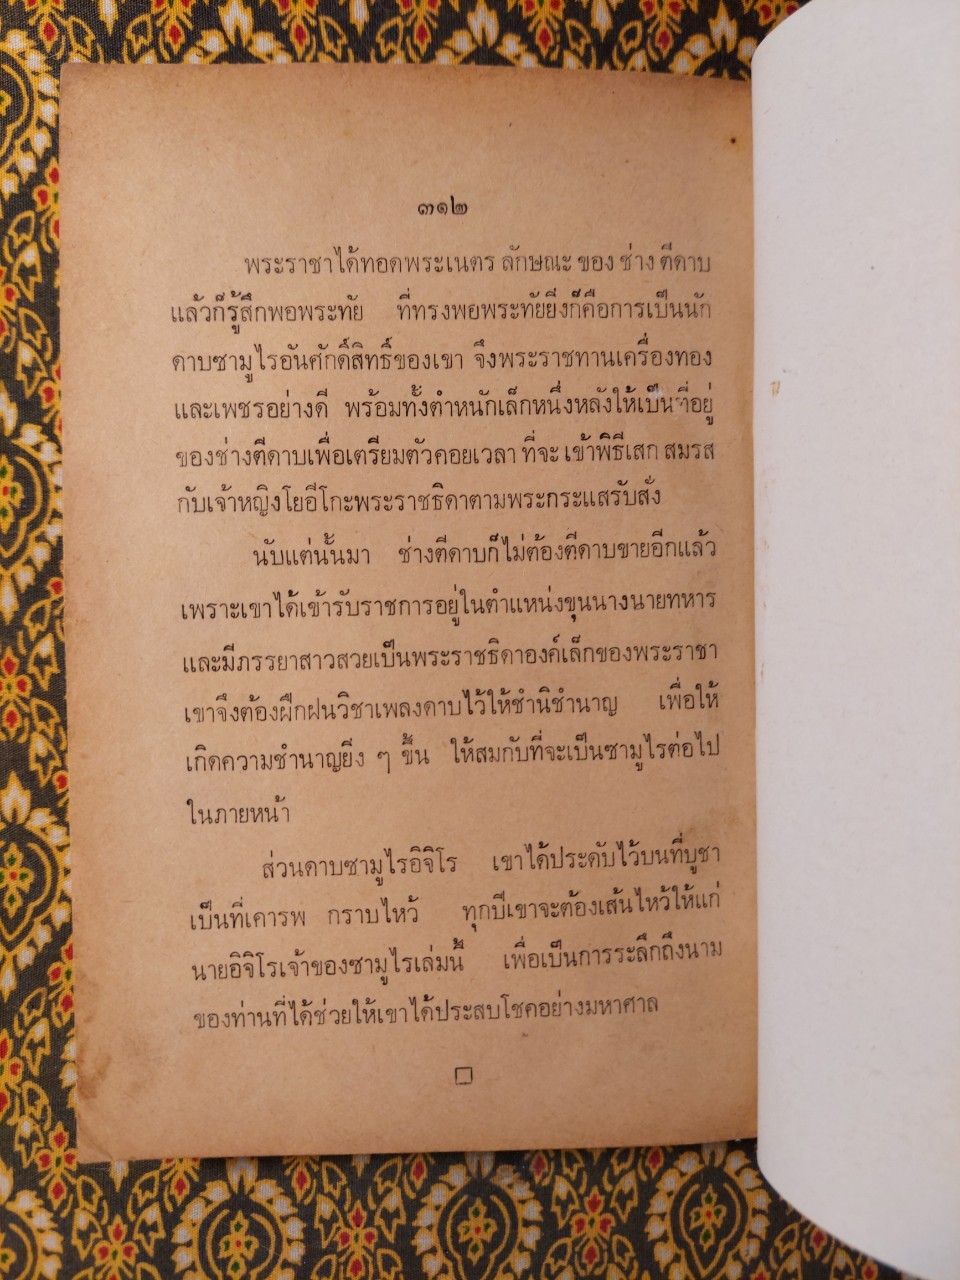 ๓๑๒
พระราชาได้ทอดพระเนตร ลักษณะ ของ ช่าง ตีดาบ
แล้วก็รู้สึกพอพระทัย ที่ทรงพอพระทัยยิ่งก็คือการเป็นนัก
ดาบซามูไรอันศักดิ์สิทธิ์ของเขา จึงพระราชทานเครื่องทอง
และเพชรอย่างดี พร้อมทั้งตำหนักเล็กหนึ่งหลังให้เป็นที่อยู่
ของช่างตีดาบเพื่อเตรียมตัวคอยเวลา ที่จะ เข้าพิธีเสก สมรส
กับเจ้าหญิงโยอีโกะพระราชธิดาตามพระกระแสรับสั่ง
นับแต่นั้นมา ช่างตีดาบก็ไม่ต้องตีดาบขายอีกแล้ว
เพราะเขาได้เข้ารับราชการอยู่ในตำแหน่งขุนนางนายทหาร
และมีภรรยาสาวสวยเป็นพระราชธิดาองค์เล็กของพระราชา
เขาจึงต้องฝึกฝนวิชาเพลงดาบไว้ให้ชำนิชำนาญ เพื่อให้
เกิดความชำนาญยิ่ง ๆ ขึ้น ให้สมกับที่จะเป็นซามูไรต่อไป
ในภายหน้า
ส่วนดาบซามูไรอิจิโร เขาได้ประดับไว้บนที่บูชา
เป็นที่เคารพ กราบไหว้ ทุกปีเขาจะต้องเส้นไหว้ให้แก่
นายอิจิโรเจ้าของซามูไรเล่มนี้ เพื่อเป็นการระลึกถึงนาม
ของท่านที่ได้ช่วยให้เขาได้ประสบโชคอย่างมหาศาล